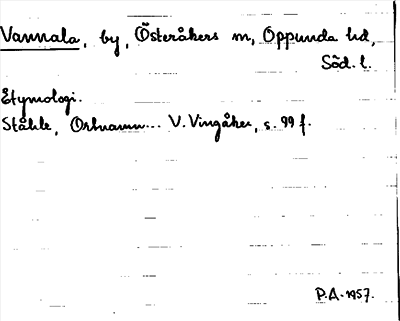 Vannala, by, Österåkers sn, Oppunda hd,
Söd. l.
Etymologi.
Ståhle, Ortnamn... V. Vingåker, s. 99 f.
P.A. 1957.